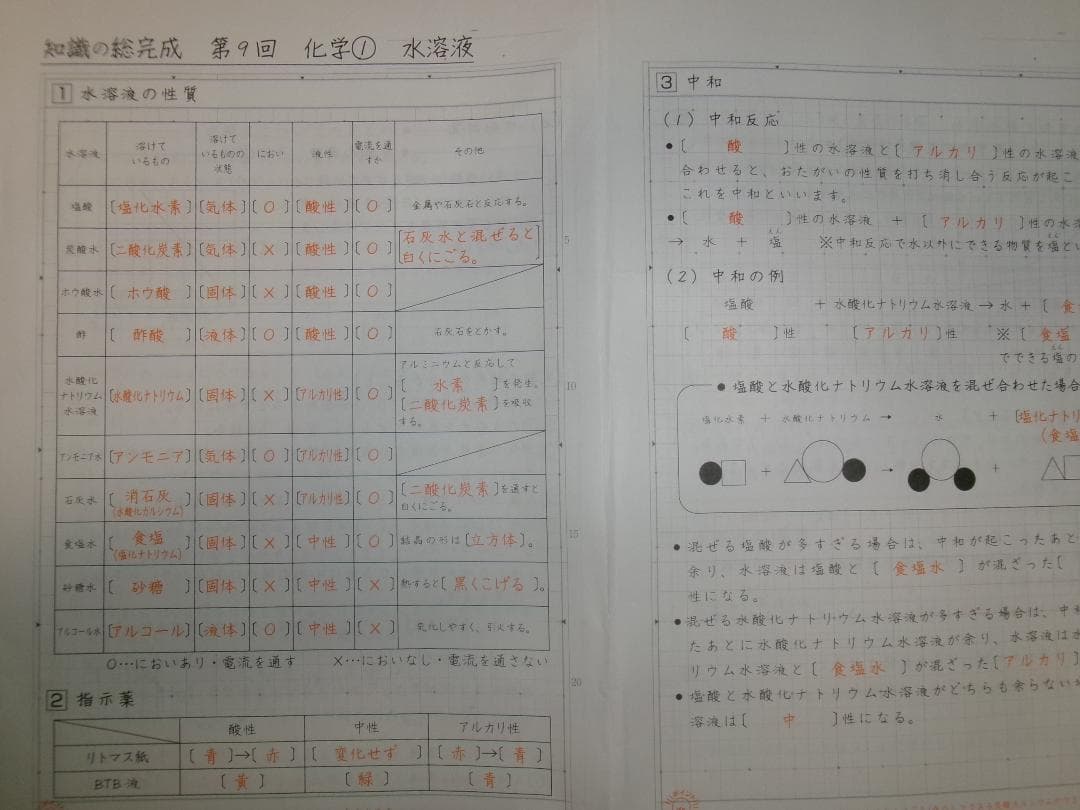 知識の総完成 第9回 化学① 水溶液
1 水溶液の性質
水溶液 溶けているもの 溶けているものの状態 におい 液性 電流を通すか その他
塩酸 [塩化水素] [気体] [○] [酸性] [○] 金属や石灰石と反応する。
炭酸水 [二酸化炭素] [気体] [×] [酸性] [○] [石灰水と混ぜると白くにごる。]
ホウ酸水 [ホウ酸] [固体] [×] [酸性] [○]
酢 [酢酸] [液体] [○] [酸性] [○] 石灰石をとかす。
水酸化ナトリウム水溶液 [水酸化ナトリウム] [固体] [×] [アルカリ性] [○] アルミニウムと反応して[水素]を発生。[二酸化炭素]を吸収する。
アンモニア水 [アンモニア] [気体] [○] [アルカリ性] [○]
石灰水 [消石灰(水酸化カルシウム)] [固体] [×] [アルカリ性] [○] [二酸化炭素]を通すと白くにごる。
食塩水 [食塩(塩化ナトリウム)] [固体] [×] [中性] [○] 結晶の形は[立方体]。
砂糖水 [砂糖] [固体] [×] [中性] [×] 熱すると[黒くこげる]。
アルコール水 [アルコール] [液体] [○] [中性] [×] 気化しやすく、引火する。
○…においあり・電流を通す ×…においなし・電流を通さない
5
10
15
20
2 指示薬
酸性 中性 アルカリ性
リトマス紙 [青]→[赤] [変化せず] [赤]→[青]
BTB液 [黄] [緑] [青]
3 中和
(1) 中和反応
●[酸]性の水溶液と[アルカリ]性の水溶液
合わせると、おたがいの性質を打ち消し合う反応が起こ
これを中和といいます。
●[酸]性の水溶液 + [アルカリ]性の水溶
→ 水 + 塩 ※中和反応で水以外にできる物質を塩とい
えん えん
(2) 中和の例
塩酸 + 水酸化ナトリウム水溶液 → 水 + [食
[酸]性 [アルカリ]性 ※[食塩
えん
でできる塩の
●塩酸と水酸化ナトリウム水溶液を混ぜ合わせた場合
塩化水素 + 水酸化ナトリウム → 水 + [塩化ナトリ
(食塩
+ → +
●混ぜる塩酸が多すぎる場合は、中和が起こったあと
余り、水溶液は塩酸と[食塩水]が混ざった[
性になる。
●混ぜる水酸化ナトリウム水溶液が多すぎる場合は、中和
たあとに水酸化ナトリウム水溶液が余り、水溶液は水
リウム水溶液と[食塩水]が混ざった[アルカリ]
●塩酸と水酸化ナトリウム水溶液がどちらも余らない場
溶液は[中]性になる。